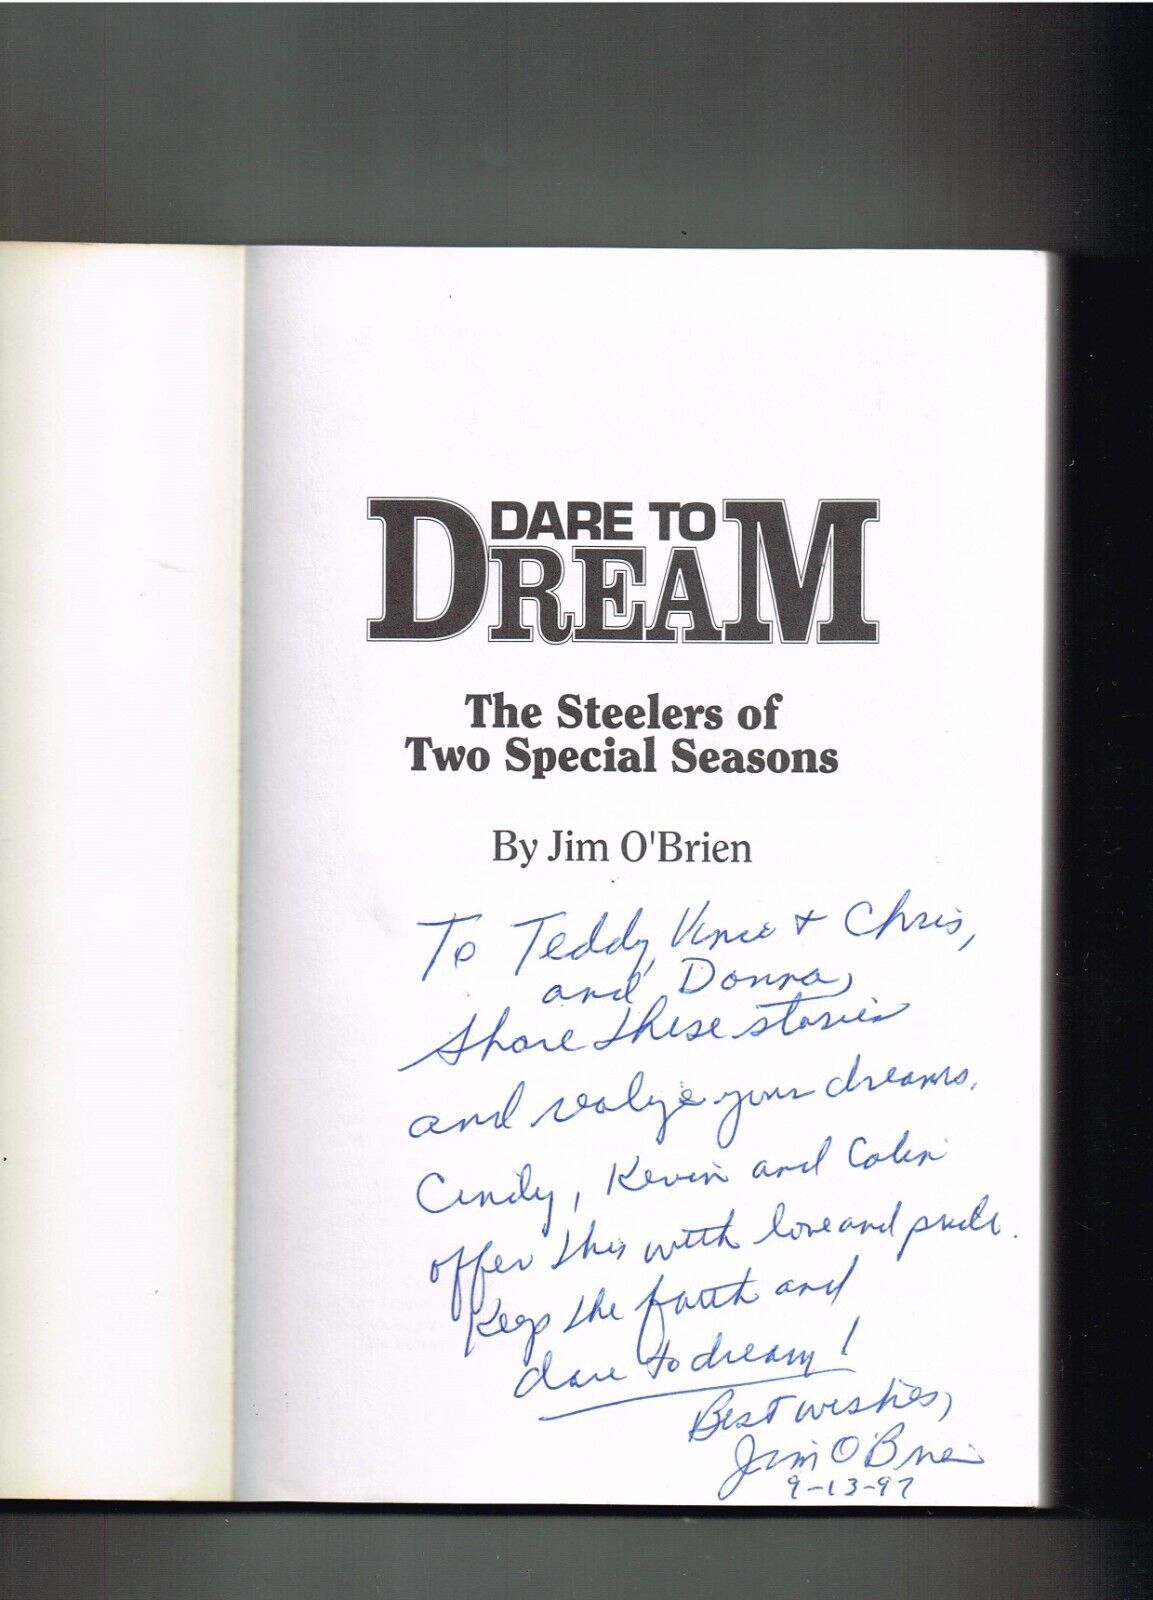 DARE TO
DREAM
The Steelers of
Two Special Seasons
By Jim O'Brien
To Teddy, Vince + Chris,
and Donna,
Share these stories
and realize your dreams.
Cindy, Kevin and Colin
offer this with love and pride.
Keep the faith and
dare to dream!
Best wishes,
Jim O'Brien
9-13-97